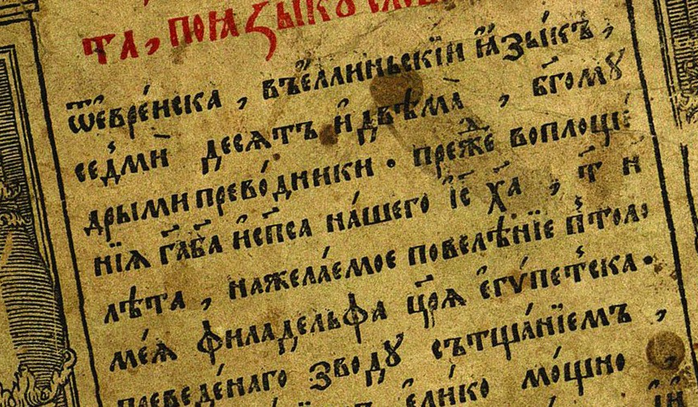 та, поꙗзыку
ѿевре́нска, въе́ллиньскїи ꙗ҆зы́къ,
седми́ десѧтъ и҆двѣма̀, бг҃ому
дрыми прево́дники. пре́же воплоще́
нїѧ гд҃а бг҃а и҆сп҃са на́шего іс҃ хр҃а, т҃ и
лѣта, нажела́емое повелѣнїе птол
ме́ѧ филаде́льфа цр҃ѧ є҆гѵ́петска.
преведе́наго зводу сътща́нїемъ,
е҆ли́ко мо́щно,